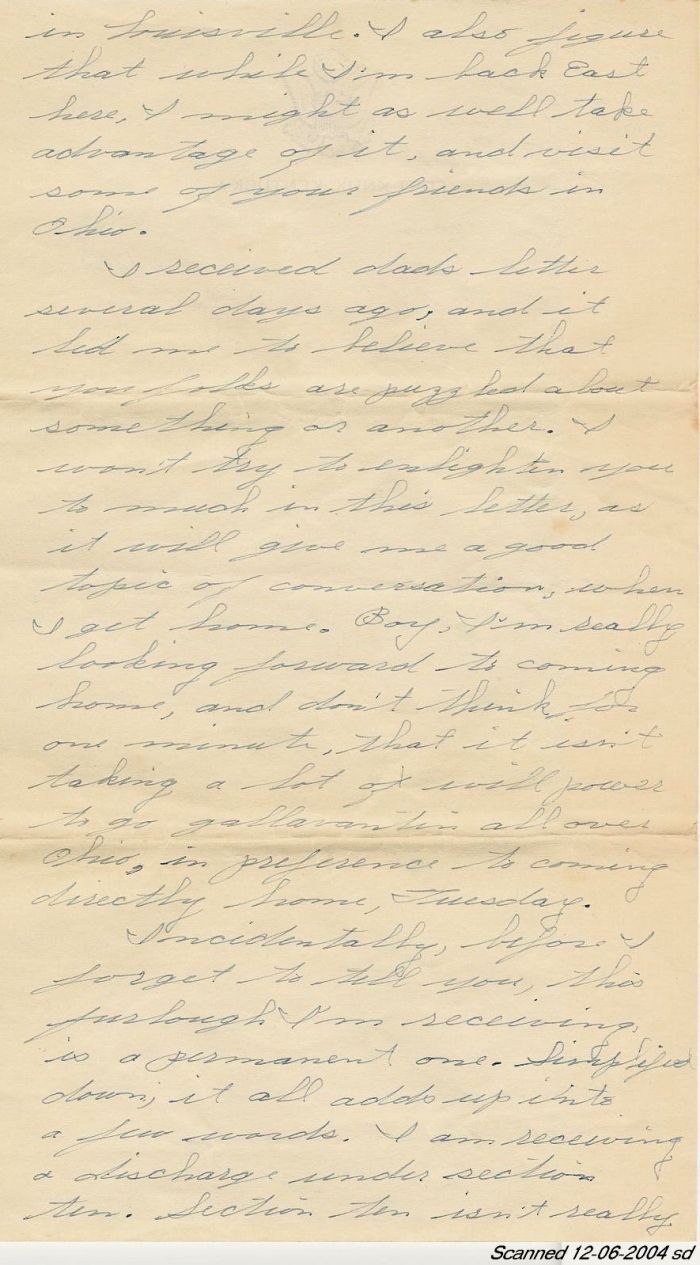 in Louisville. I also figure
that while I'm back East
here, I might as well take
advantage of it, and visit
some of your friends in
Ohio.
I received dads letter
several days ago, and it
led me to believe that
you folks are puzzled about
something or another. I
won't try to enlighten you
to much in this letter, as
it will give me a good
topic of conversation, when
I get home. Boy, I'm really
looking forward to coming
home, and don't think for
one minute, that it isn't
taking a lot of will power
to go gallavantin all over
Ohio, in preference to coming
directly home, Tuesday.
Incidentally, before I
forget to tell you, this
furlough I'm receiving,
is a permanent one. Simplified
down, it all adds up into
a few words. I am receiving
a discharge under section
ten. Section ten isn't really
Scanned 12-06-2004 sd